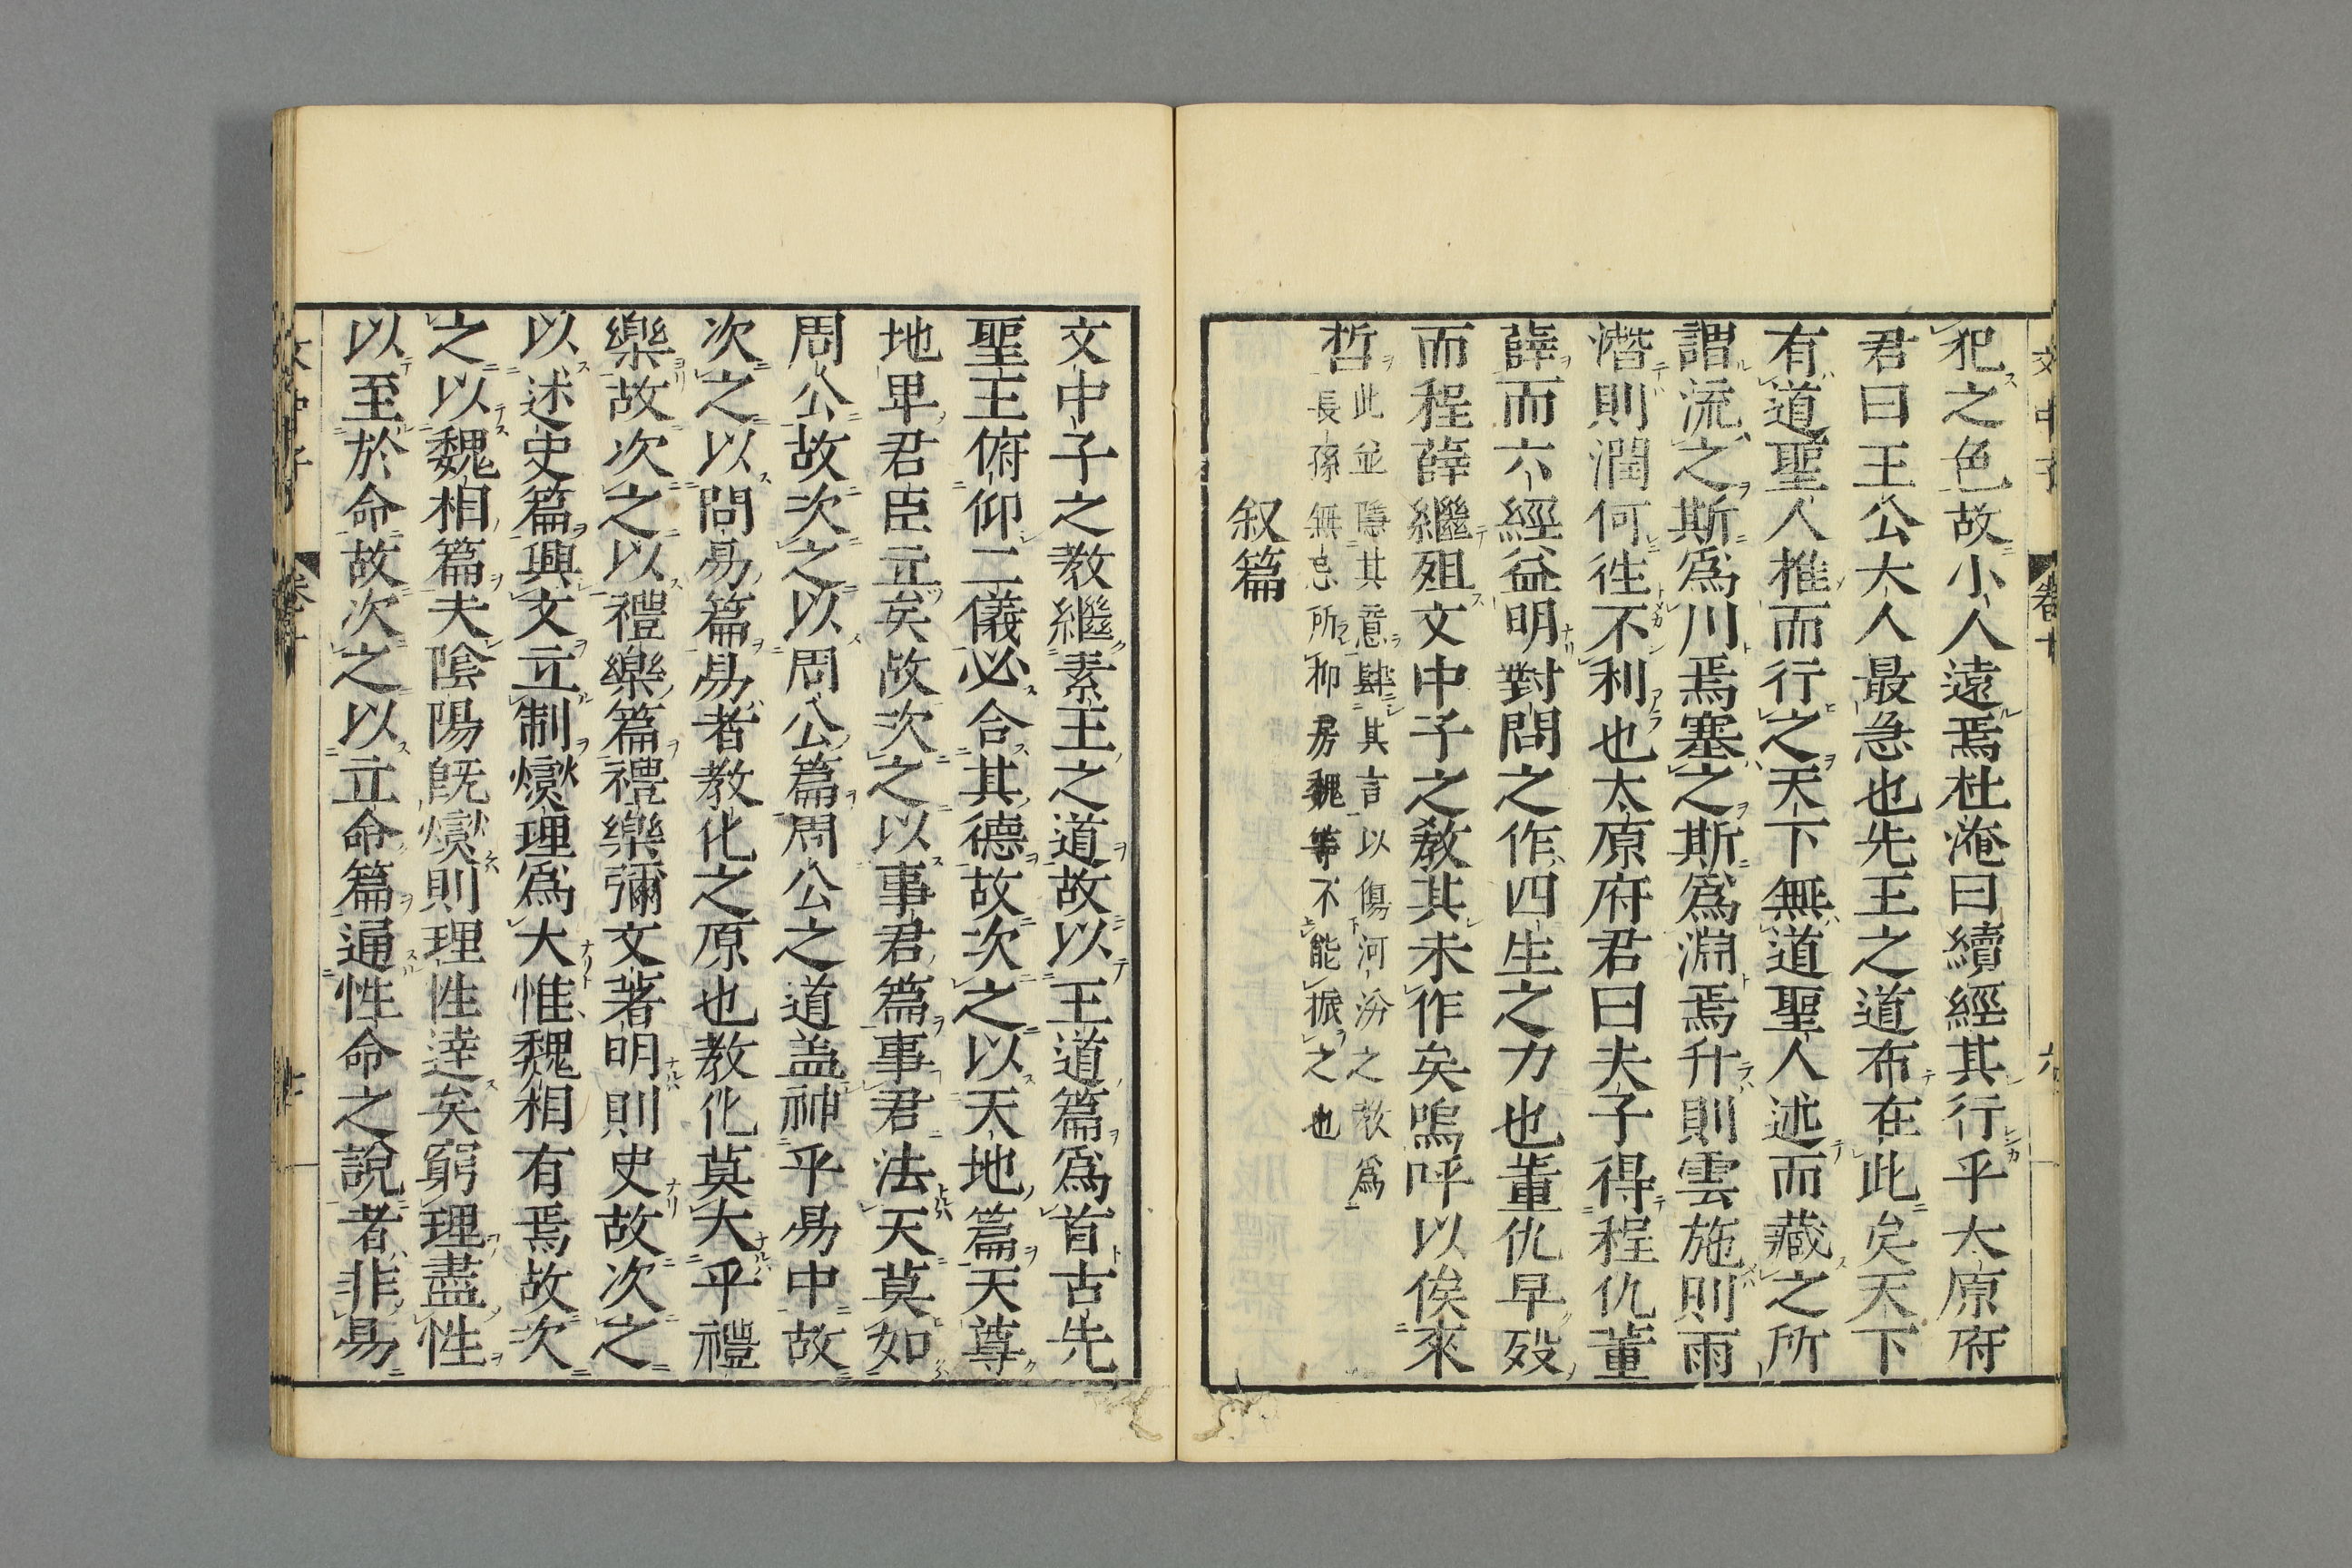 犯之色故小人遠焉杜淹曰續經其行乎太原府
君曰王公大人最急也先王之道布在此矣天下
有道聖人推而行之天下無道聖人述而藏之所
謂流之斯爲川焉塞之斯爲淵焉升則雲施則雨
潛則潤何徃不利也太原府君曰夫子得程仇董
薛而六經益明對問之作四生之力也董仇早歿
而程薛繼殂文中子之敎其未作矣嗚呼以俟來
哲
此並隱其意肆其言以傷河汾之教爲
長孫無忌所抑房魏等不能振之也
叙篇
文中子之教繼素王之道故以王道篇爲首古先
聖王俯仰二儀必合其德故次之以天地篇天尊
地卑君臣立矣故次之以事君篇事君法天莫如
周公故次之以周公篇周公之道盖神乎易中故
次之以問易篇易者教化之原也教化莫大乎禮
樂故次之以禮樂篇禮樂彌文著明則史故次之
以述史篇興文立制爕理爲大惟魏相有焉故次
之以魏相篇夫陰陽旣爕則理性達矣窮理盡性
以至於命故次之以立命篇通性命之說者非易